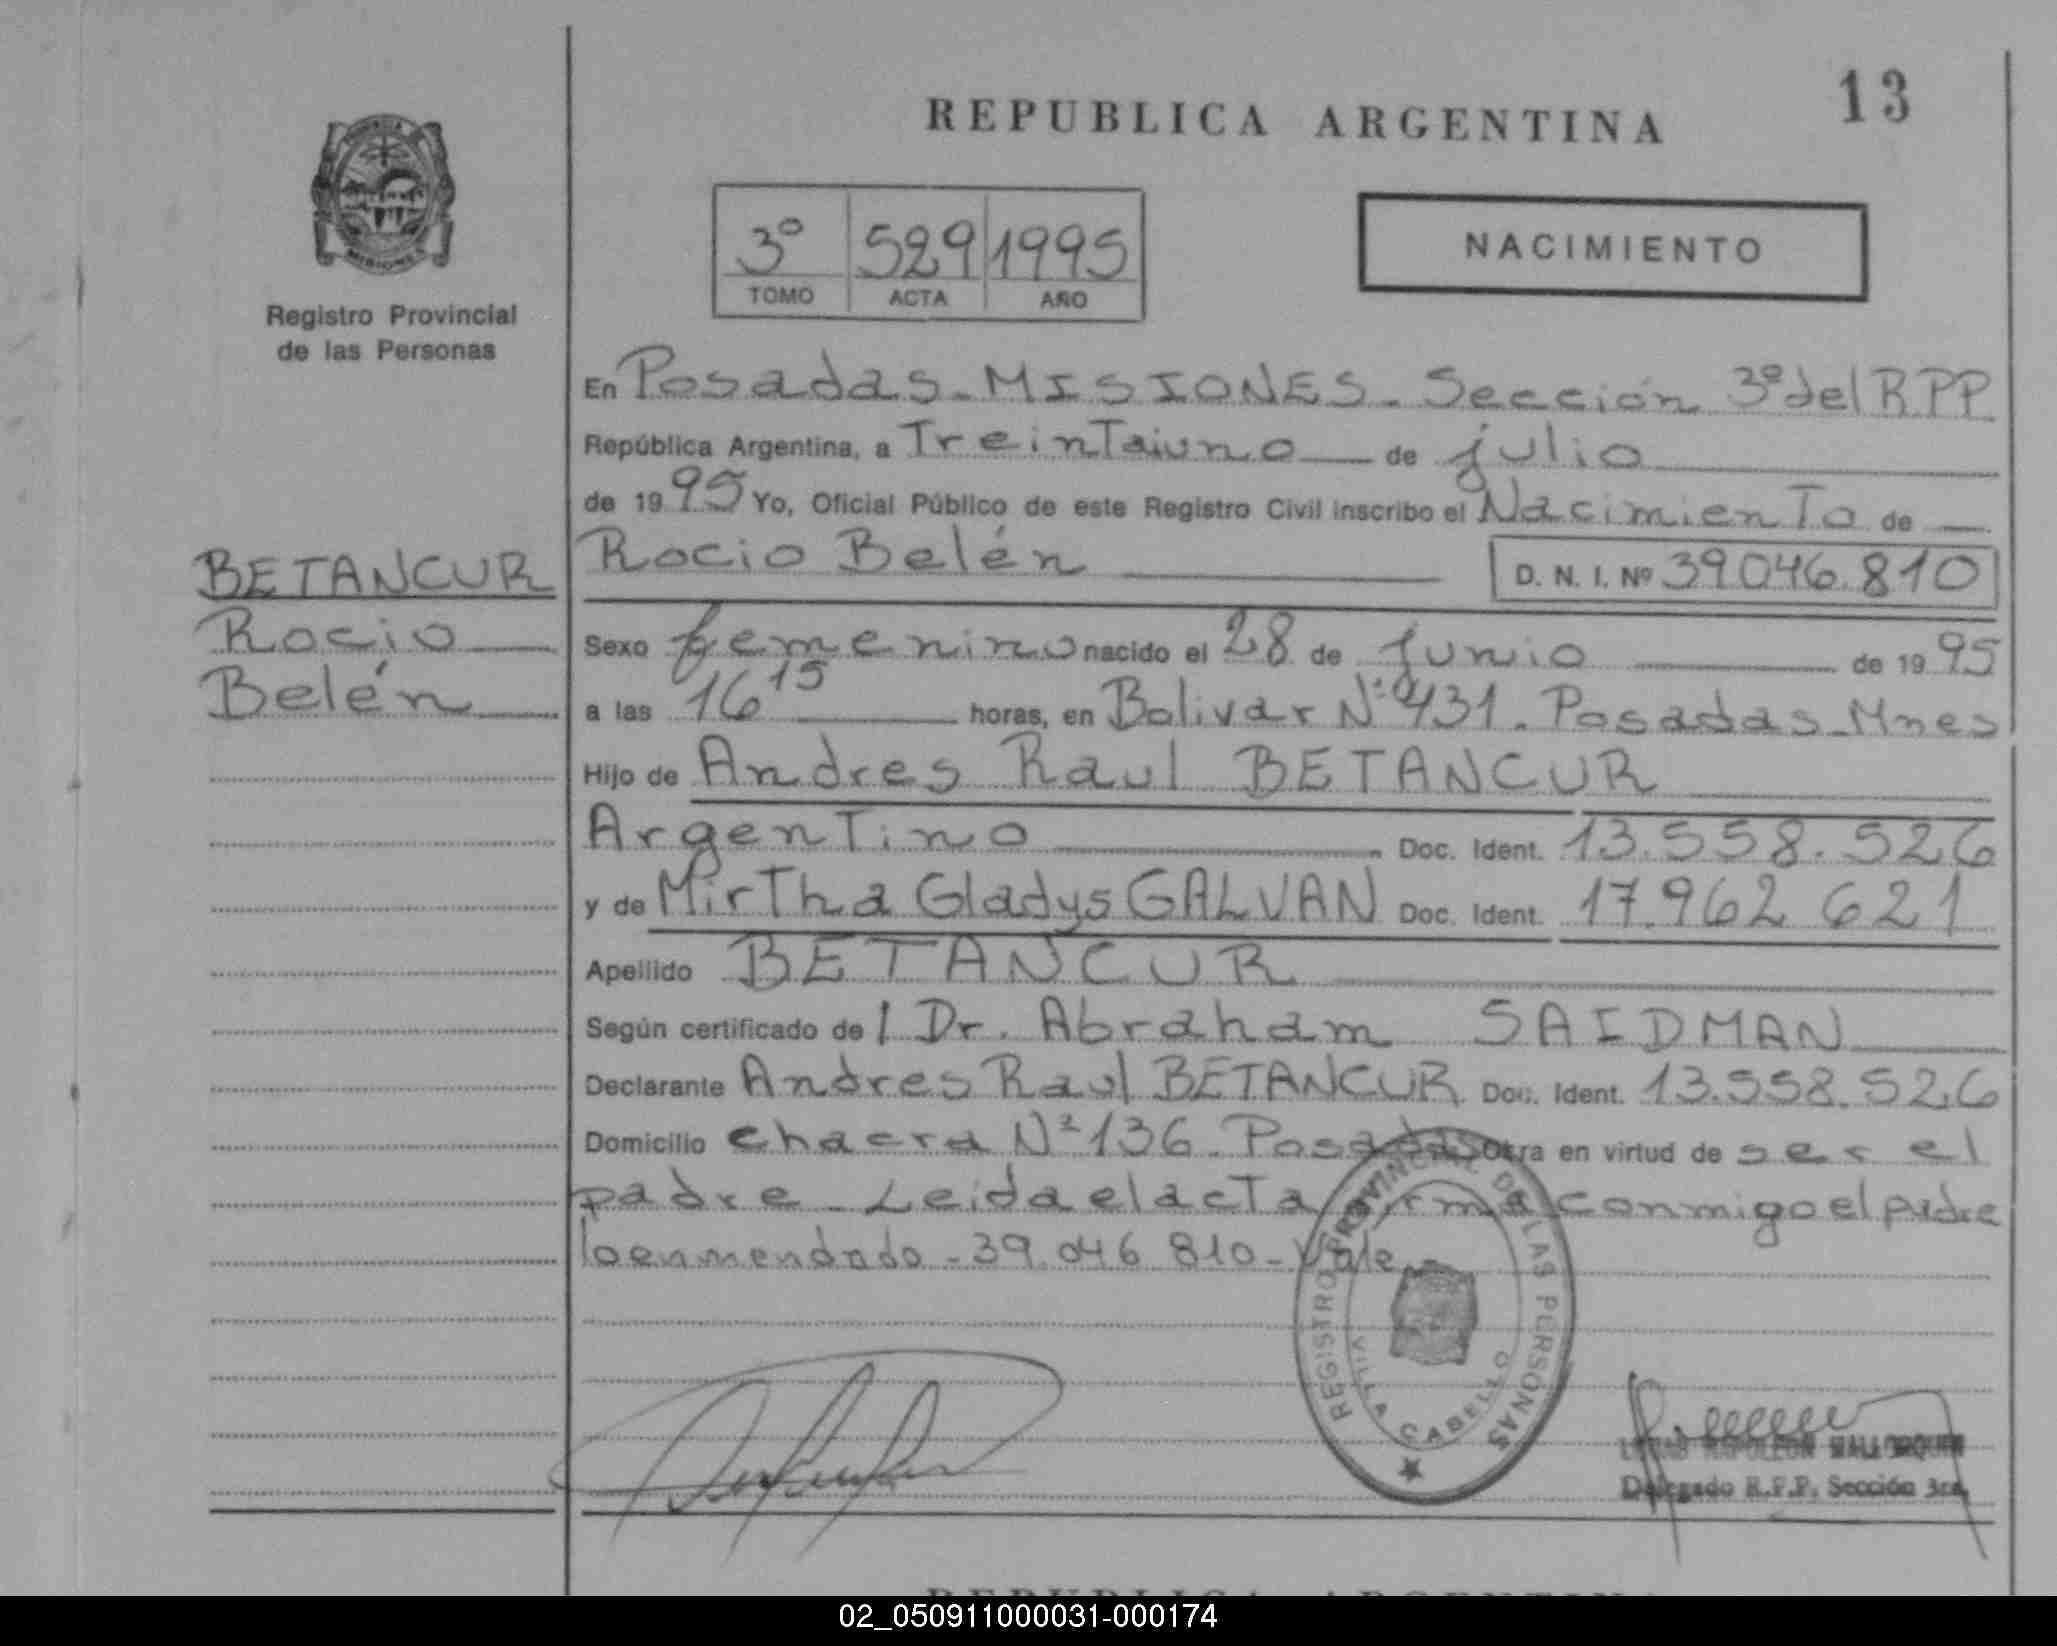 REPUBLICA ARGENTINA
13
3º 529 1995
TOMO ACTA AÑO
NACIMIENTO
MISIONES
Registro Provincial
de las Personas
En Posadas - MISIONES - Sección 3º del R.P.P.
República Argentina, a Treintaiuno de julio
de 1995 Yo, Oficial Público de este Registro Civil inscribo el Nacimiento de
BETANCUR
Rocio
Belén
Rocio Belén D. N. I. Nº 39.046.810
Sexo femenino nacido el 28 de junio de 1995
a las 16 15 horas, en Bolivar Nº 431 - Posadas - Mnes
Hijo de Andres Raul BETANCUR
Argentino Doc. Ident. 13.558.526
y de Mirtha Gladys GALVAN Doc. Ident. 17.962.621
Apellido BETANCUR
Según certificado del Dr. Abraham SAIDMAN
Declarante Andres Raul BETANCUR Doc. Ident. 13.558.526
Domicilio chacra Nº 136 - Posadas Obra en virtud de ser el
padre - Leida el acta firma conmigo el padre
lo enmendado - 39.046.810 - Vale
REGISTRO PROVINCIAL DE LAS PERSONAS
VILLA CABELLO
NAPOLEON MALLORQUIN
Delegado R.P.P. Sección 3ra.
REPUBLICA ARGENTINA
02_050911000031-000174